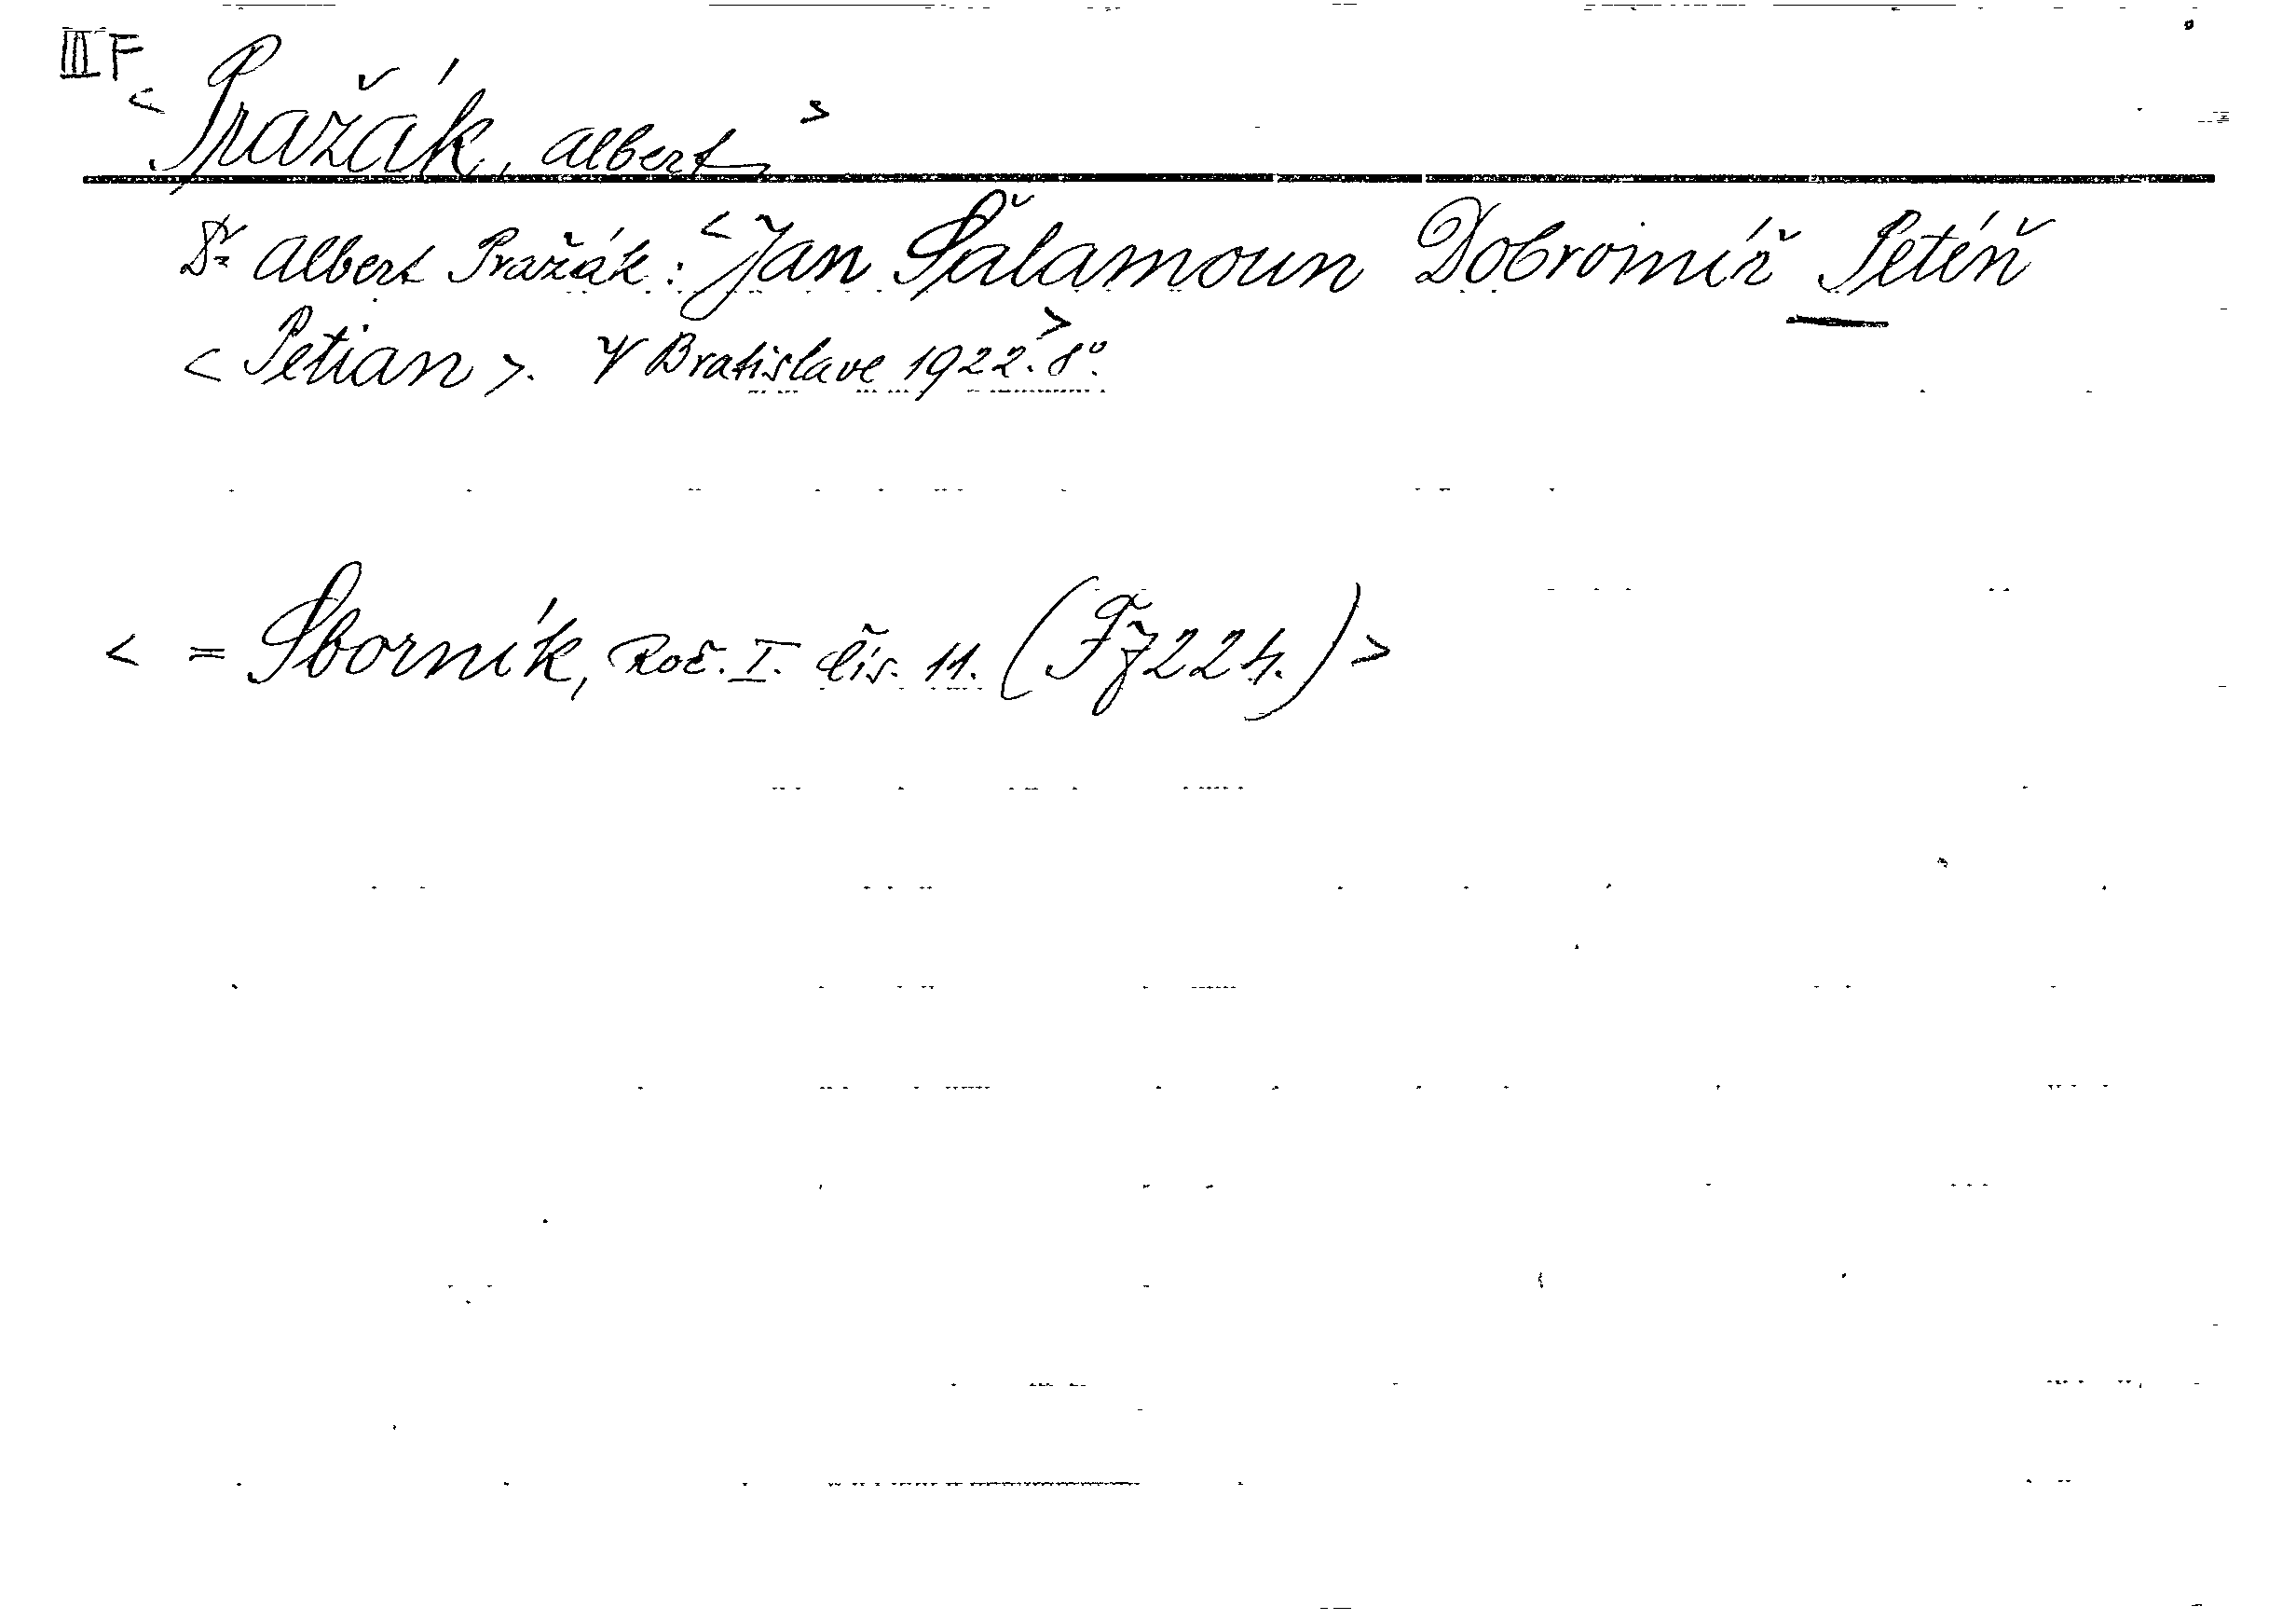 III F
< Pražák, Albert >
Dr Albert Pražák: < Jan Šalamoun Dobromíř Petéň
< Petian >. V Bratislave 1922. > 8°.
< = Sborník, Roč. I. čís. 11. (Fj 224.) >